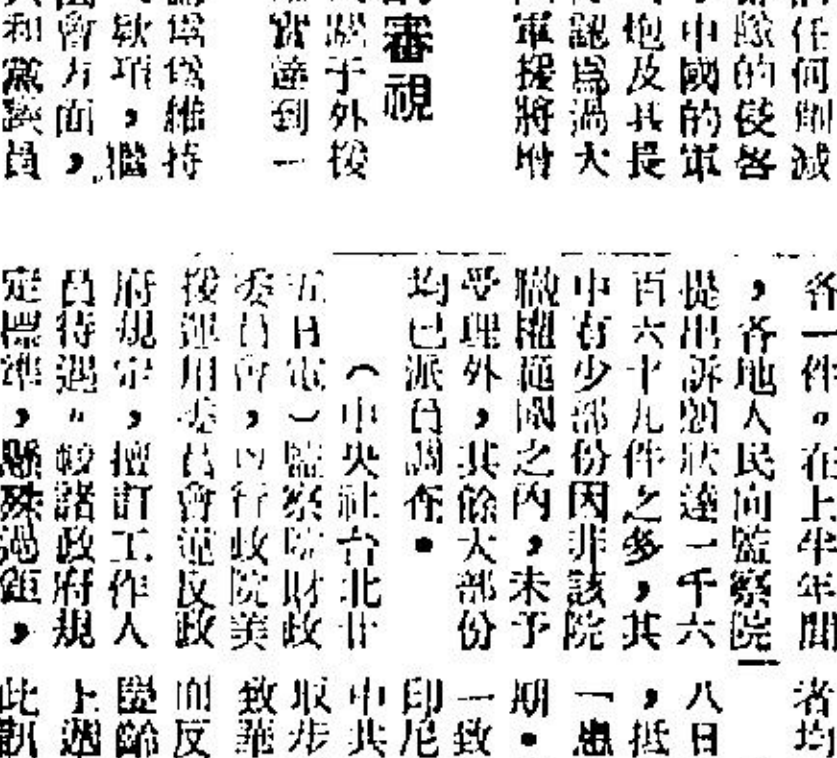 任何削減
除的侵略
中國的軍
炮及其長
認爲過大
軍援將增
審視
于外援
實達到一
爲維持
款項，繼
會方面，
和黨議員
各一件。在上半年間
，各地人民向監察院
提出訴願狀達一千六
百六十九件之多，其
中有少部份因非該院
職權範圍之內，未予
受理外，其餘大部份
均已派員調查。
（中央社台北廿
五日電）監察院財政
委員會，以行政院美
援運用委員會違反政
府規定，擅訂工作人
員待遇。較諸政府規
定標準，懸殊過鉅，
者均
八日
，抵
一患
期。
一致
印尼
中共
取步
致華
而反
慶餘
上週
此訊